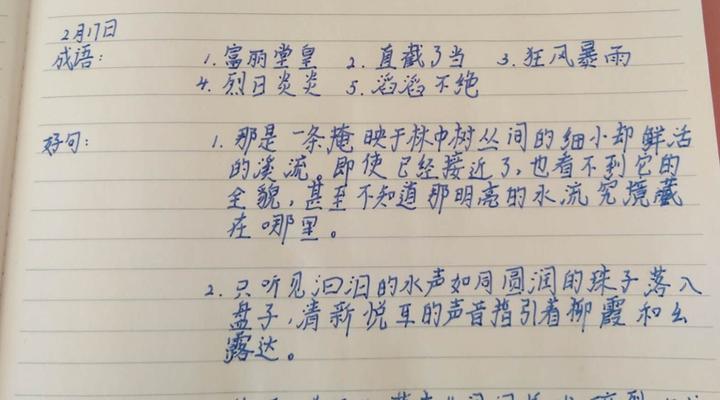 2月17日
成语: 1.富丽堂皇 2.直截了当 3.狂风暴雨
4.烈日炎炎 5.滔滔不绝
好句: 1.那是一条掩映于林中树丛间的细小却鲜活
的溪流。即使已经接近了,也看不到它的
全貌,甚至不知道那明亮的水流究境藏
在哪里。
2.只听见汩汩的水声如同圆润的珠子落入
盘子,清新悦耳的声音指引着柳霞和么
露达。